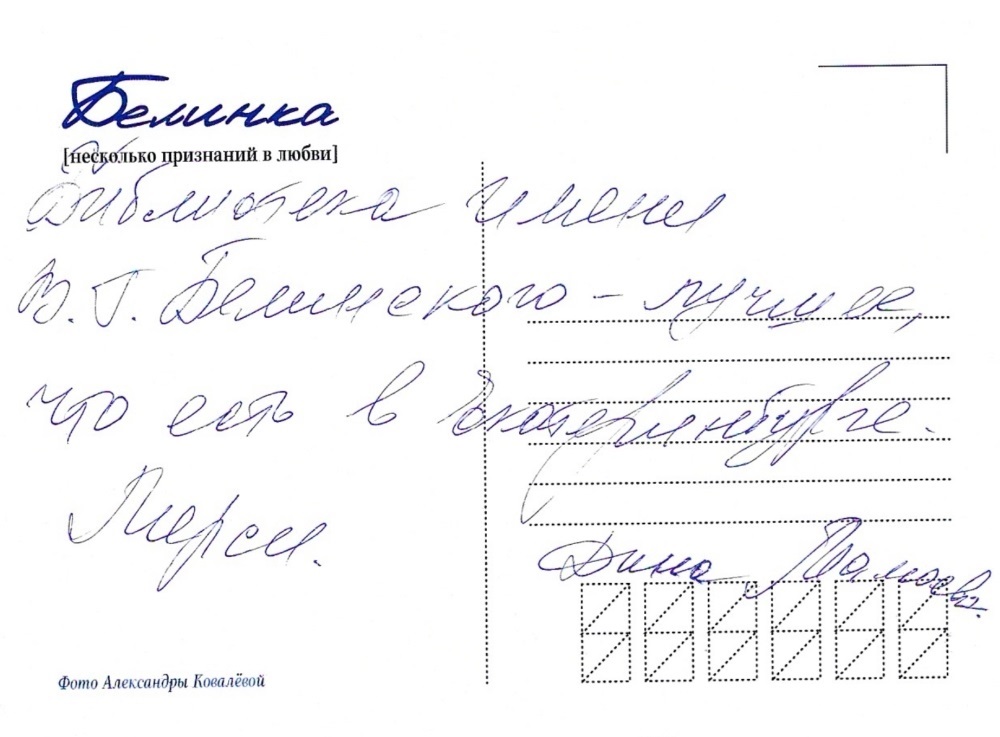 Белинка
[несколько признаний в любви]
Библиотека имени
В. Г. Белинского – лучшее,
что есть в Екатеринбурге.
Мерси.
Дина
Фото Александры Ковалёвой